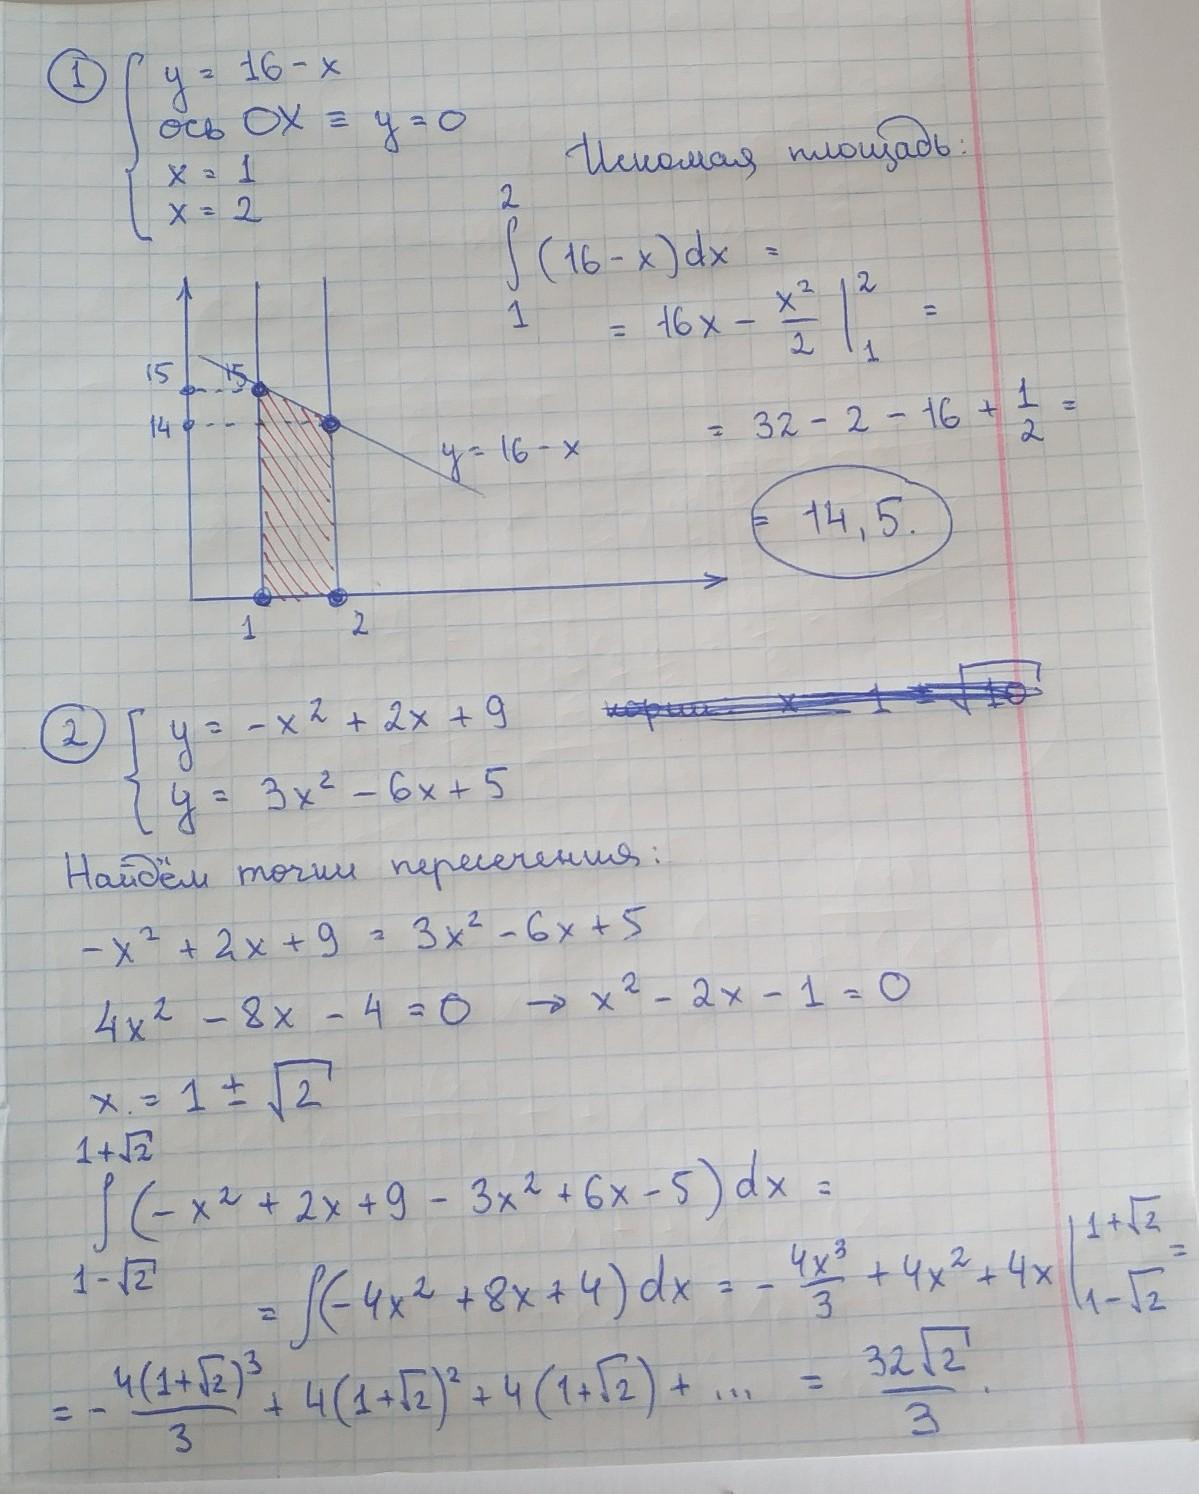 1 y = 16 - x
ось OX ≡ y = 0
x = 1
x = 2
Искомая площадь:
2
∫ (16 - x) dx =
1
= 16x - x²/2 |₁² =
= 32 - 2 - 16 + 1/2 =
= 14,5.
15 15
14
y = 16 - x
1 2
2 y = -x² + 2x + 9
y = 3x² - 6x + 5
Найдём точки пересечения:
-x² + 2x + 9 = 3x² - 6x + 5
4x² - 8x - 4 = 0 → x² - 2x - 1 = 0
x = 1 ± √2
1+√2
∫ (-x² + 2x + 9 - 3x² + 6x - 5) dx =
1-√2
= ∫(-4x² + 8x + 4) dx = - 4x³/3 + 4x² + 4x | 1+√2 1-√2 =
= - 4(1+√2)³/3 + 4(1+√2)² + 4(1+√2) + ... = 32√2/3.